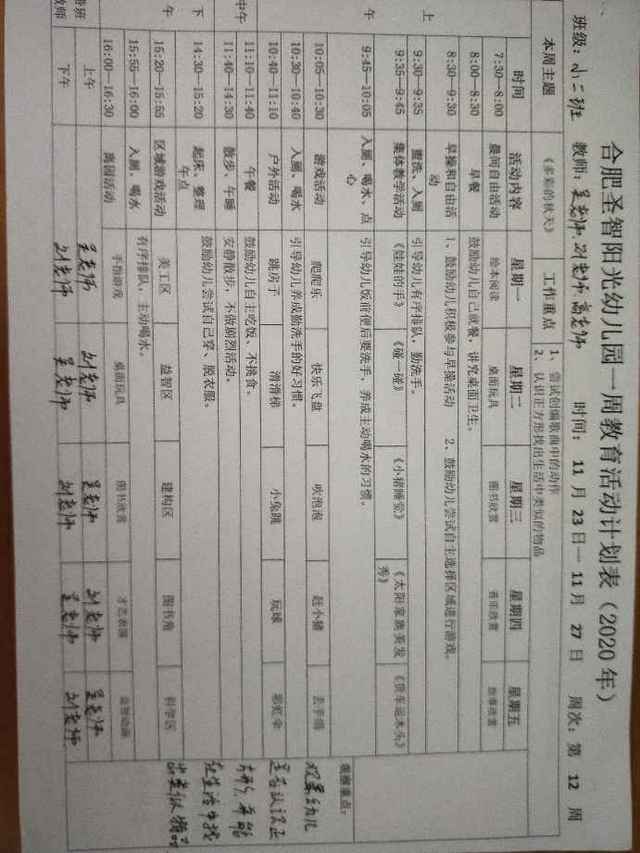 合肥圣智阳光幼儿园一周教育活动计划表（2020 年）
班级：小二班 教师：吴老师、刘老师、高老师 时间： 11 月 23 日— 11 月 27 日 周次：第 12 周
本周主题 《多彩的秋天》 工作重点 1、尝试创编歌曲中的动作
2、认识正方形找出生活中类似的物品
时间 活动内容 星期一 星期二 星期三 星期四 星期五
上午
7:30—8:00 晨间自由活动 绘本阅读 桌面玩具 图书欣赏 音乐欣赏 故事欣赏
8:00—8:30 早餐 鼓励幼儿自己就餐，讲究桌面卫生。
8:30—9:30 早操和自由活动 1、鼓励幼儿积极参与早操活动 2、鼓励幼儿尝试自主选择区域进行游戏。
9:30—9:35 盥洗、入厕 引导幼儿有序排队，勤洗手。
9:35—9:45 集体教学活动 《娃娃的手》 《碰一碰》 《小猪睡觉》 《太阳家族美发秀》 《货车运木头》
9:45—10:05 入厕、喝水、点心 引导幼儿饭前便后要洗手，养成主动喝水的习惯。
10:05—10:30 游戏活动 爬爬乐 快乐飞盘 吹泡泡 赶小猪
10:30—10:40 入厕、喝水 引导幼儿养成勤洗手的好习惯。
10:40—11:10 户外活动 跳房子 滑滑梯 小兔跳 玩球 彩虹伞
中午
11:10—11:40 午餐 鼓励幼儿自主吃饭、不挑食。
11:40—14:30 散步、午睡 安静散步，不做剧烈活动。
下午
14:30—15:20 起床、整理 午点 鼓励幼儿尝试自己穿、脱衣服。
15:20—15:55 区域游戏活动 美工区 益智区 建构区 图书角 科学区
15:55—16:00 入厕、喝水 有序排队，主动喝水。
16:00—16:30 离园活动 手指游戏 桌面玩具 图书欣赏 才艺表演 益智动画
带班教师
上午 吴老师 刘老师 吴老师 刘老师 吴老师
下午 刘老师 吴老师 刘老师 吴老师 刘老师
观察重点：
观察幼儿
是否认识正
方形，并能
在生活中找
出类似物品